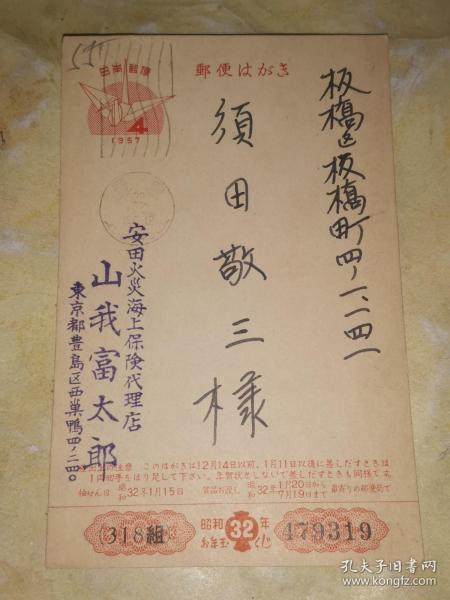 郵便はがき
日本郵便
4
1957
板橋区板橋町四ノ一、一二四一
須田敬三様
安田火災海上保険代理店
山我富太郎
東京都豊島区西巣鴨四ノ二四〇
このはがきは12月14日以前、1月11日以後に差しだすときは
1円切手をはり足して下さい。年賀状としないで差しだすときも同様です。
抽せん日 昭和32年1月15日 賞品お渡し 昭和32年1月20日から7月19日まで 最寄りの郵便局で
(318組)
昭和32年
お年玉くじ
479319
孔夫子旧书网